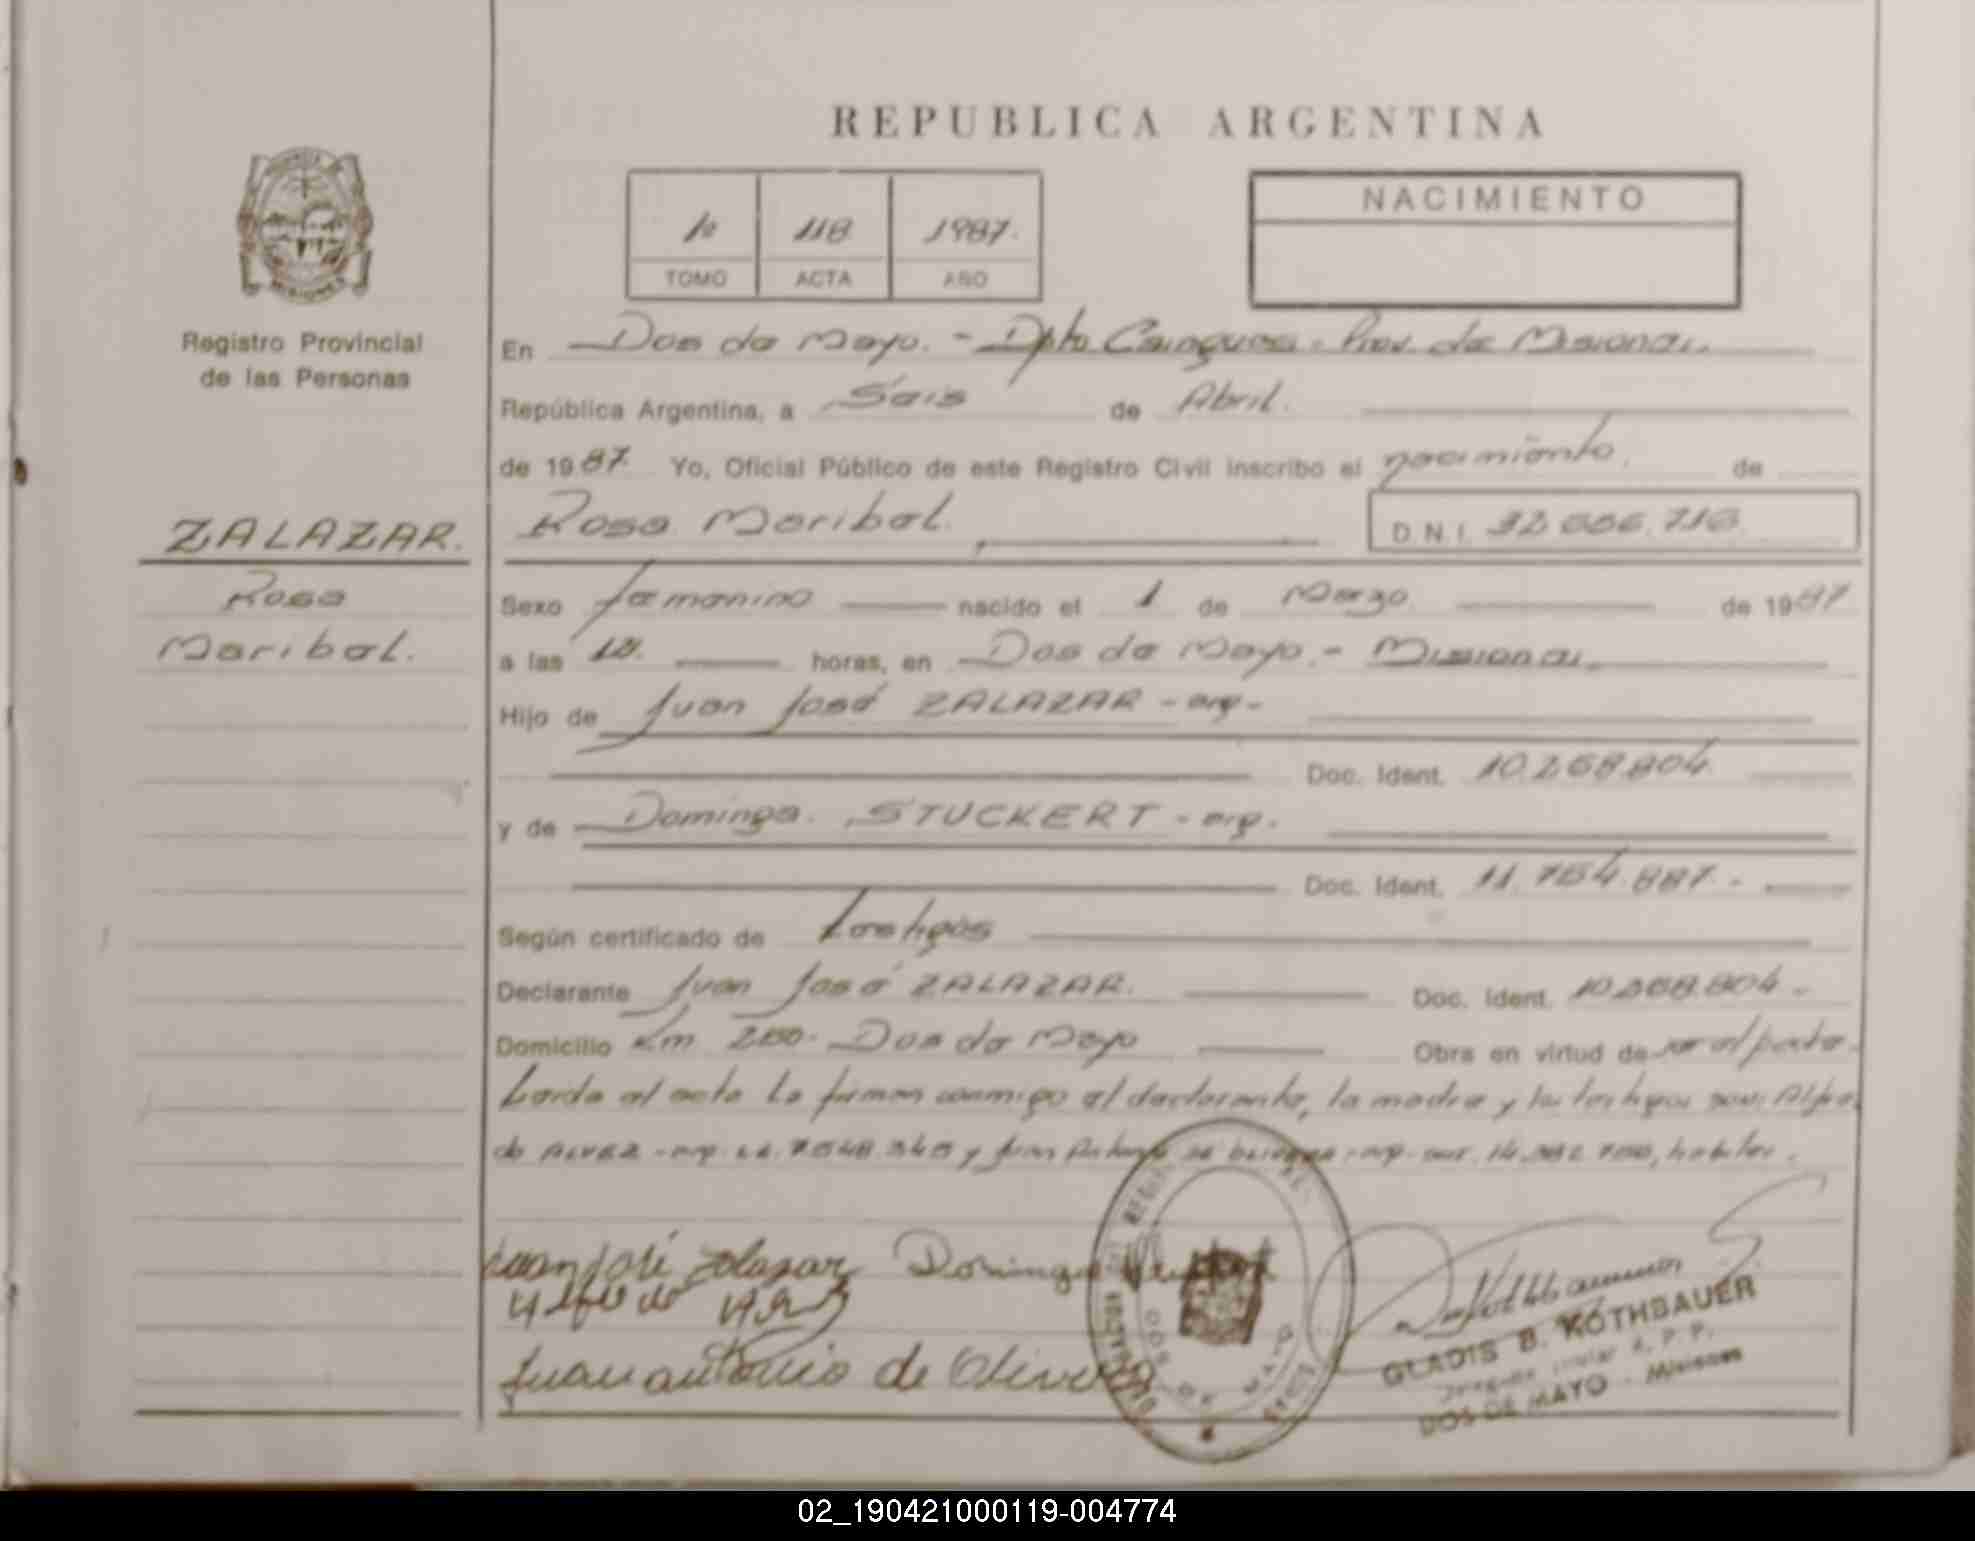 REPUBLICA ARGENTINA
MISIONES
Registro Provincial
de las Personas
1º 118 1987.
TOMO ACTA AÑO
NACIMIENTO
En Dos de Mayo. - Dpto Cainguas. Prov. de Misiones.
República Argentina, a Seis de Abril.
de 1987. Yo, Oficial Público de este Registro Civil inscribo el nacimiento. de
ZALAZAR.
Rosa Maribel. D.N.I.
Rosa
Maribel.
Sexo femenino nacido el 1 de Marzo de 1987
a las horas, en Dos de Mayo. - Misiones.
Hijo de Juan José ZALAZAR - arg -
Doc. Ident. 10.268.804.
y de Dominga. STUCKERT - arg.
Doc. Ident. 11.754.887. -
Según certificado de testigos
Declarante Juan José ZALAZAR. Doc. Ident. 10.268.804 -
Domicilio Km Dos de Mayo Obra en virtud de ser el padre.
Leida el acta la firman conmigo el declarante, la madre y los testigos Alfre
do ALVEZ - arg. y Juan Antonio
Juan José Zalazar Dominga
Juan antonio de Olivera
GLADIS B. KOTHBAUER
R. P. P.
DOS DE MAYO - Misiones
02_190421000119-004774